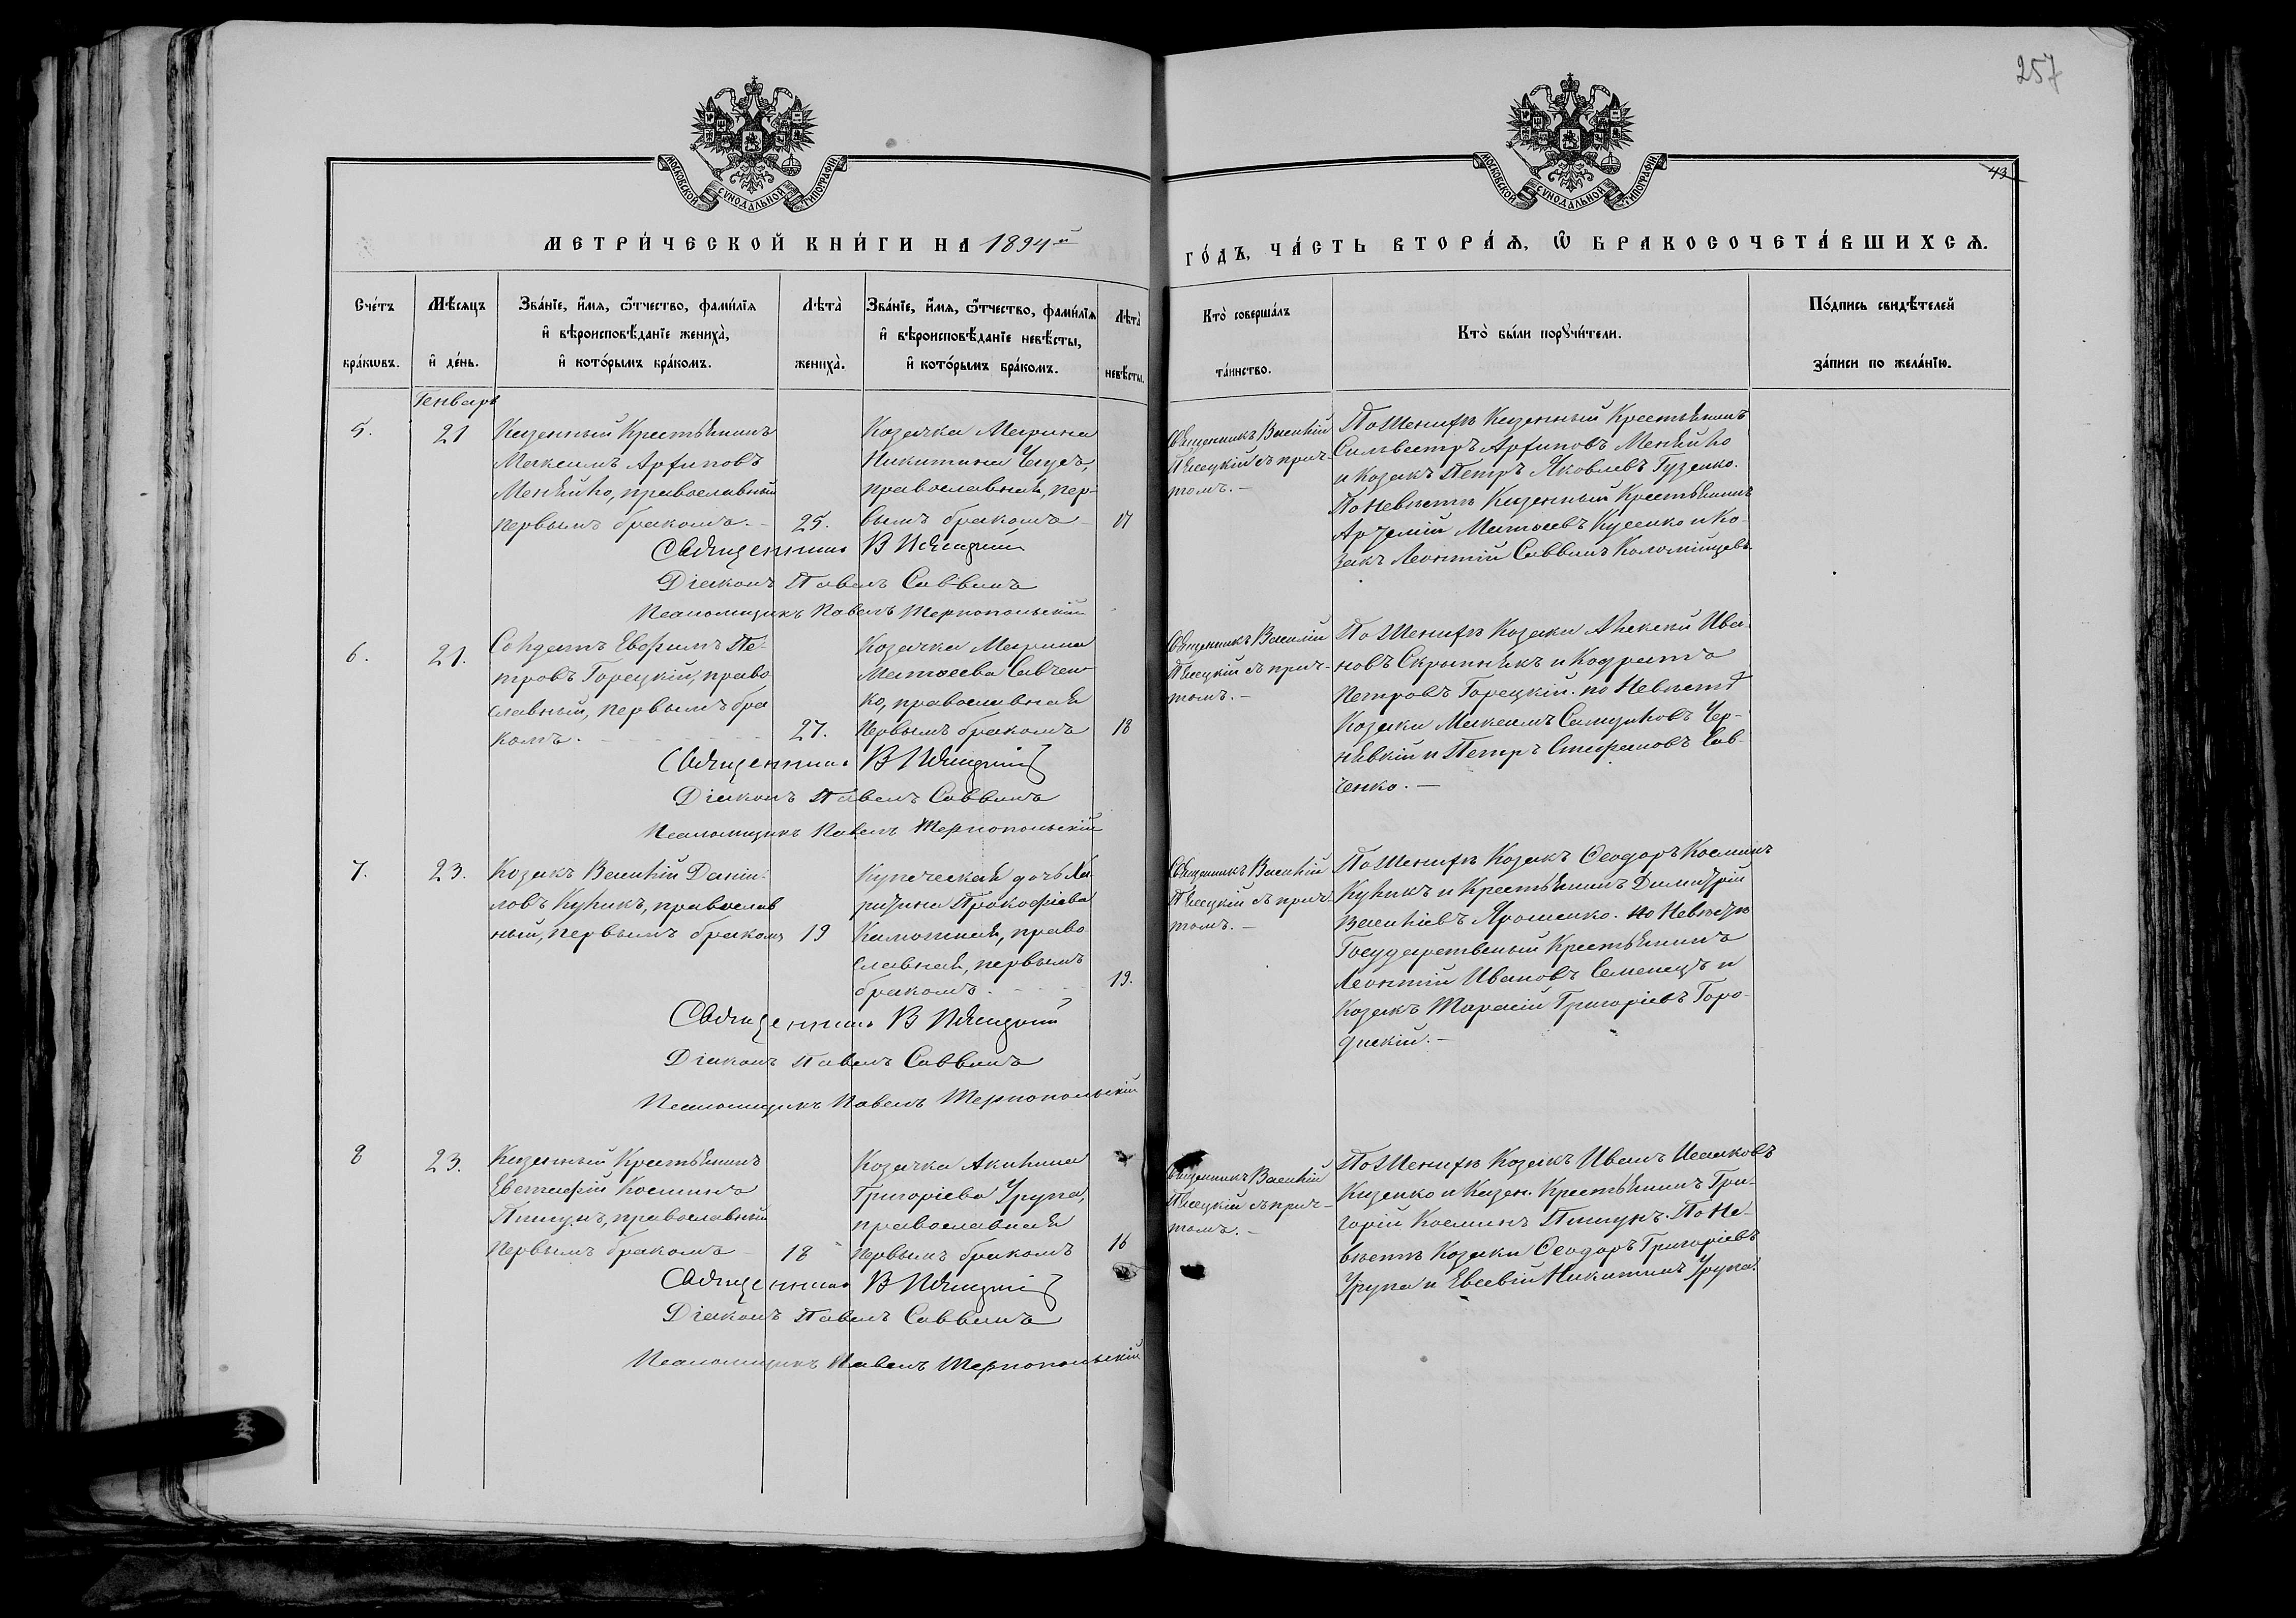 257
43
МОСКОВСКОЙ СѴНОДАЛЬНОЙ ТИПОГРАФІИ
МОСКОВСКОЙ СѴНОДАЛЬНОЙ ТИПОГРАФІИ
МЕТРИ́ЧЕСКОЙ КНИ́ГИ НА 1894й
ГО́ДЪ, ЧА́СТЬ ВТОРА́Ѧ, Ѽ БРАКОСОЧЕТА́ВШИХСѦ.
Сче́тъ
бра́кѡвъ.
Мѣ́сѧцъ
и҆ де́нь.
Зва́нїе, и҆́мѧ, ѻ҆́тчество, фами́лїѧ
и҆ вѣроисповѣ́данїе жениха̀,
и҆ кото́рымъ бра́комъ.
Лѣта̀
жениха̀.
Зва́нїе, и҆́мѧ, ѻ҆́тчество, фами́лїѧ
и҆ вѣроисповѣ́данїе невѣ́сты,
и҆ кото́рымъ бра́комъ.
Лѣта̀
невѣ́сты.
Кто̀ соверша́лъ
та́инство.
Кто̀ бы́ли порꙋчи́тели.
По́дпись свидѣ́телей
за́писи по жела́нїю.
Генварь
5.
21
Казенный Крестьянинъ
Максимъ Архиповъ
православный
первымъ бракомъ.
25.
Козачка Марина
Никитина
православная, пер-
вымъ бракомъ
Священникъ Василій
Пясецкій съ прич-
томъ.
По Женихѣ Казенный Крестьянинъ
Сильвестръ Архиповъ
и Козакъ Петръ Яковлевъ Гузенко.
По Невѣстѣ Казенный Крестьянинъ
Матѳеевъ Куценко и Ко-
закъ Леонтій Саввинъ Коломійцевъ.
Священникъ В Пясецкій
Діаконъ Павелъ Саввинъ
Псаломщикъ Павелъ Тернопольскій
6.
21.
Солдатъ Евфимъ Пе-
тровъ Горецкій, право
славный, первымъ бра
комъ.
27.
Козачка Марина
Матѳеева Савчен
ко, православная
первымъ бракомъ
18
Священникъ Василій
Пясецкій съ прич-
томъ.
По Женихѣ Козаки Алексѣй Ива-
новъ Скрыпникъ и Кодратъ
Петровъ Горецкій. по Невѣстѣ
Козаки Максимъ Самуиловъ Чер-
нявкій и Петръ Стефановъ Сав-
ченко.
Священникъ В Пясецкій
Діаконъ Павелъ Саввинъ
Псаломщикъ Павелъ Тернопольскій
7.
23.
Козакъ Василій Даніи-
ловъ Куликъ, православ
ный, первымъ бракомъ
19
Купеческая дочь Ха
ритина Прокофіева
право
славная, первымъ
бракомъ.
19.
Священникъ Василій
Пясецкій съ прич-
томъ.
По Женихѣ Козакъ Ѳеодоръ Косминъ
Куликъ и Крестьянинъ Димитрій
Василіевъ Ярошенко. по Невѣстѣ
Государственый Крестьянинъ
Леонтій Ивановъ Семенецъ и
Козакъ Тарасій Григоріевъ Горо-
дискій.
Священникъ В Пясецкій
Діаконъ Павелъ Саввинъ
Псаломщикъ Павелъ Тернопольскій
8
23.
Казенный Крестьянинъ
Евстафій Косминъ
Пишунъ, православный
первымъ бракомъ
18
Козачка Акилина
Григоріева Урупа,
православная
первымъ бракомъ
16
Священникъ Василій
Пясецкій съ прич-
томъ.
По Женихѣ Козакъ Иванъ Исаковъ
и Казен. Крестьянинъ Гри-
горій Косминъ Пишунъ. По Не-
вѣстѣ Козаки Ѳеодоръ Григоріевъ
Урупа и Евсевій Никитинъ Урупа.
Священникъ В Пясецкій
Діаконъ Павелъ Саввинъ
Псаломщикъ Павелъ Тернопольскій